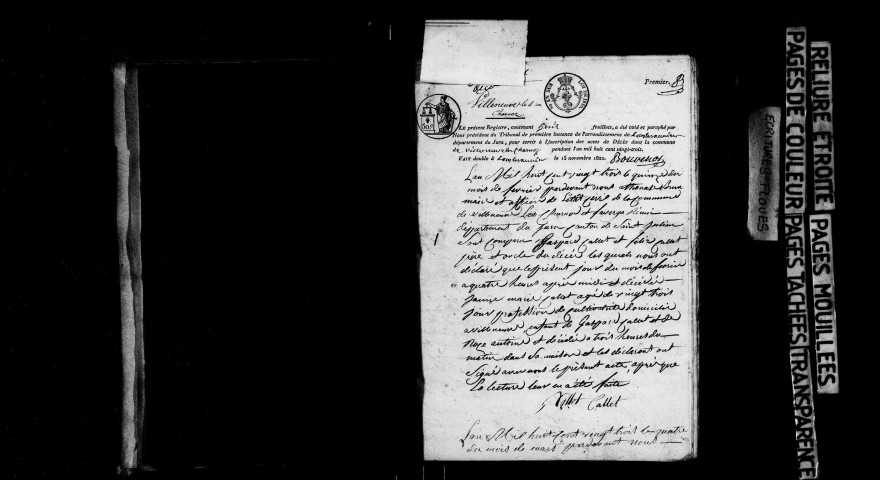 Premier.
Villeneuve les
Charnod
Le présent Registre, contenant feuillets, a été coté et paraphé par
Nous président du Tribunal de première instance de l'arrondissement de Lons-le-saunier
département du Jura, pour servir à l'inscription des actes de Décès dans la commune
de Villeneuve les Charnod pendant l'an mil huit cent vingt-trois.
Fait double à Lons-le-saunier le 15 novembre 1822.
L'an Mil huit cent vingt trois le quinze du
mois de fevrier pardevant nous athanase
maire et officier de L'état civil de la commune
de villeneuve Les Charnod
departement du jura canton de Saint julien
Sont comparu Gaspard callet et felix callet
père et oncle du décéé les quels nous ont
déclaré que le présent jour du mois de fevrier
a quatre heures après midi est décédé
jeanne marie callet agé de vingt trois
jour profession de cultivatrice domicilié
a villeneuve enfant de Gaspard callet et de
et décédé a trois heures du
matin dans Sa maison et les déclarant ont
Signé avec nous le présent acte après que
La lecture leur en a été faite
Callet
L'an Mil huit Cent vingt trois le quatre
du mois de mars pardevant nous
RELIURE ETROITE PAGES MOUILLEES
PAGES DE COULEUR PAGES TACHEES TRANSPARENCE
ECRITURES FLOUES